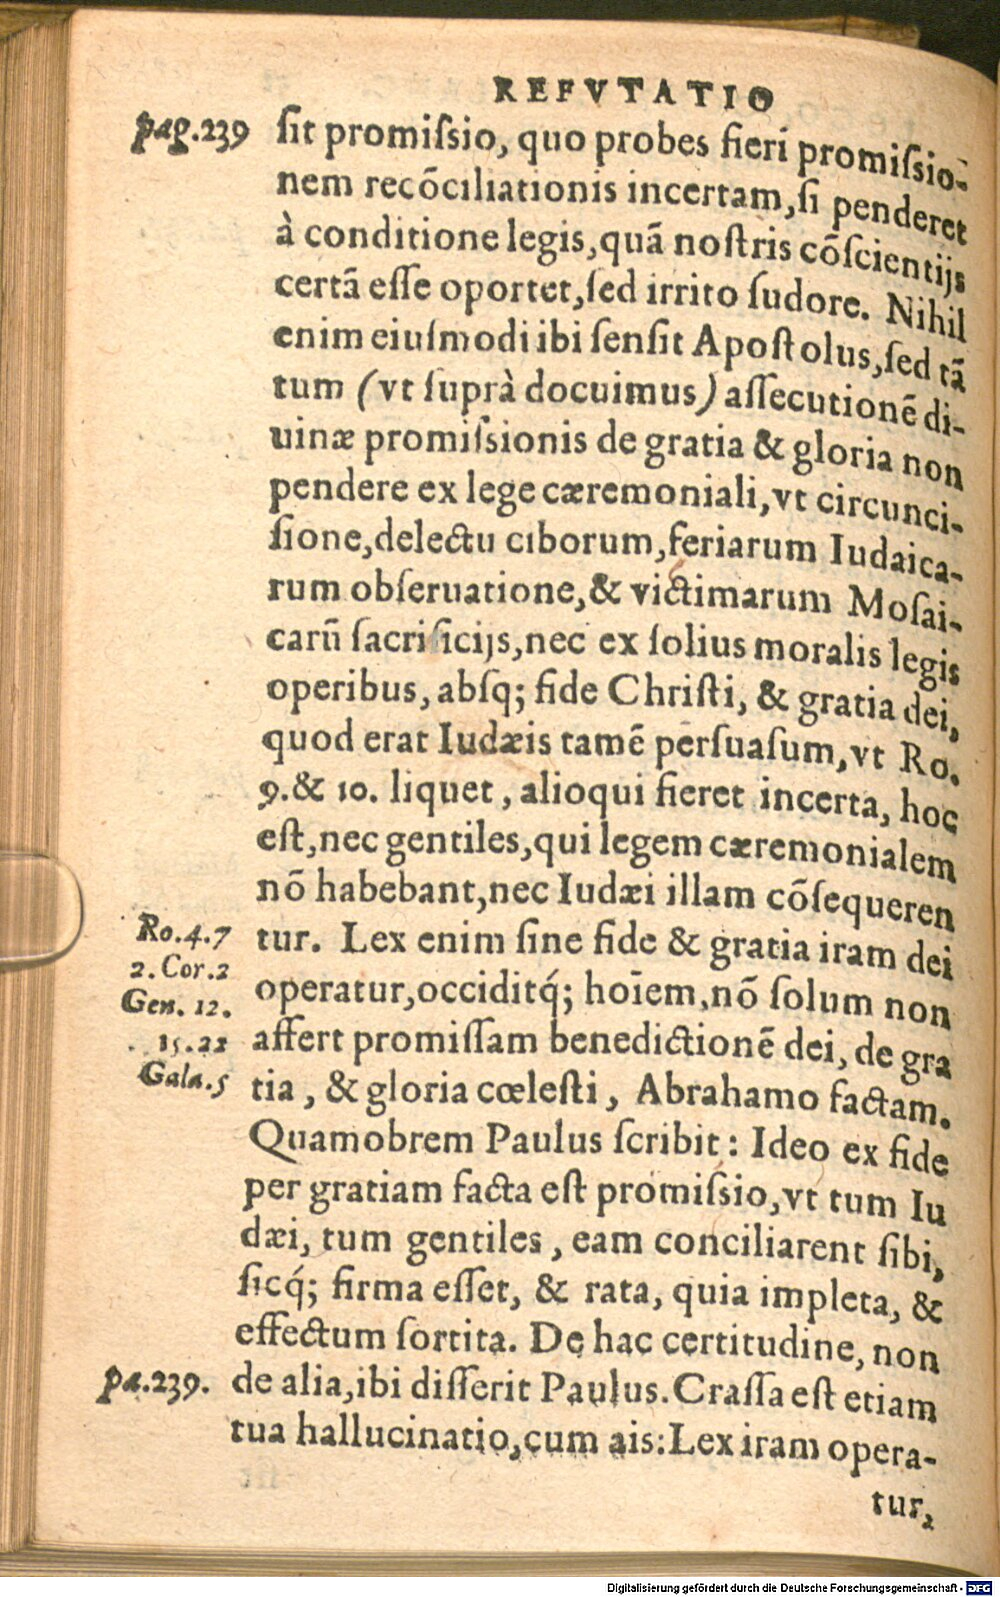 REFVTATIO
pag.239
ſit promiſsio, quo probes fieri promiſsio-
nem recõciliationis incertam, ſi penderet
à conditione legis, quã noſtris cõſcientijs
certã eſſe oportet, ſed irrito ſudore. Nihil
enim eiuſmodi ibi ſenſit Apoſtolus, ſed tã
tum (vt ſuprà docuimus) aſſecutionẽ di-
uinæ promiſsionis de gratia & gloria non
pendere ex lege cæremoniali, vt circunci-
ſione, delectu ciborum, feriarum Iudaica-
rum obſeruatione, & victimarum Moſai-
carũ ſacrificijs, nec ex ſolius moralis legis
operibus, abſq; fide Chriſti, & gratia dei,
quod erat Iudæis tamẽ perſuaſum, vt Ro.
9. & 10. liquet, alioqui fieret incerta, hoc
eſt, nec gentiles, qui legem cæremonialem
nõ habebant, nec Iudæi illam cõſequeren
Ro.4.7
tur. Lex enim ſine fide & gratia iram dei
2. Cor.2
Gen. 12.
operatur, occiditq́; hoĩem, nõ ſolum non
15.22
affert promiſſam benedictionẽ dei, de gra
Gala.5
tia, & gloria cœleſti, Abrahamo factam.
Quamobrem Paulus ſcribit: Ideo ex fide
per gratiam facta eſt promiſsio, vt tum Iu
dæi, tum gentiles, eam conciliarent ſibi,
ſicq́; firma eſſet, & rata, quia impleta, &
effectum ſortita. De hac certitudine, non
pa.239.
de alia, ibi differit Paulus. Craſſa eſt etiam
tua hallucinatio, cum ais: Lex iram opera-
tur,
Digitalisierung gefördert durch die Deutsche Forschungsgemeinschaft - DFG